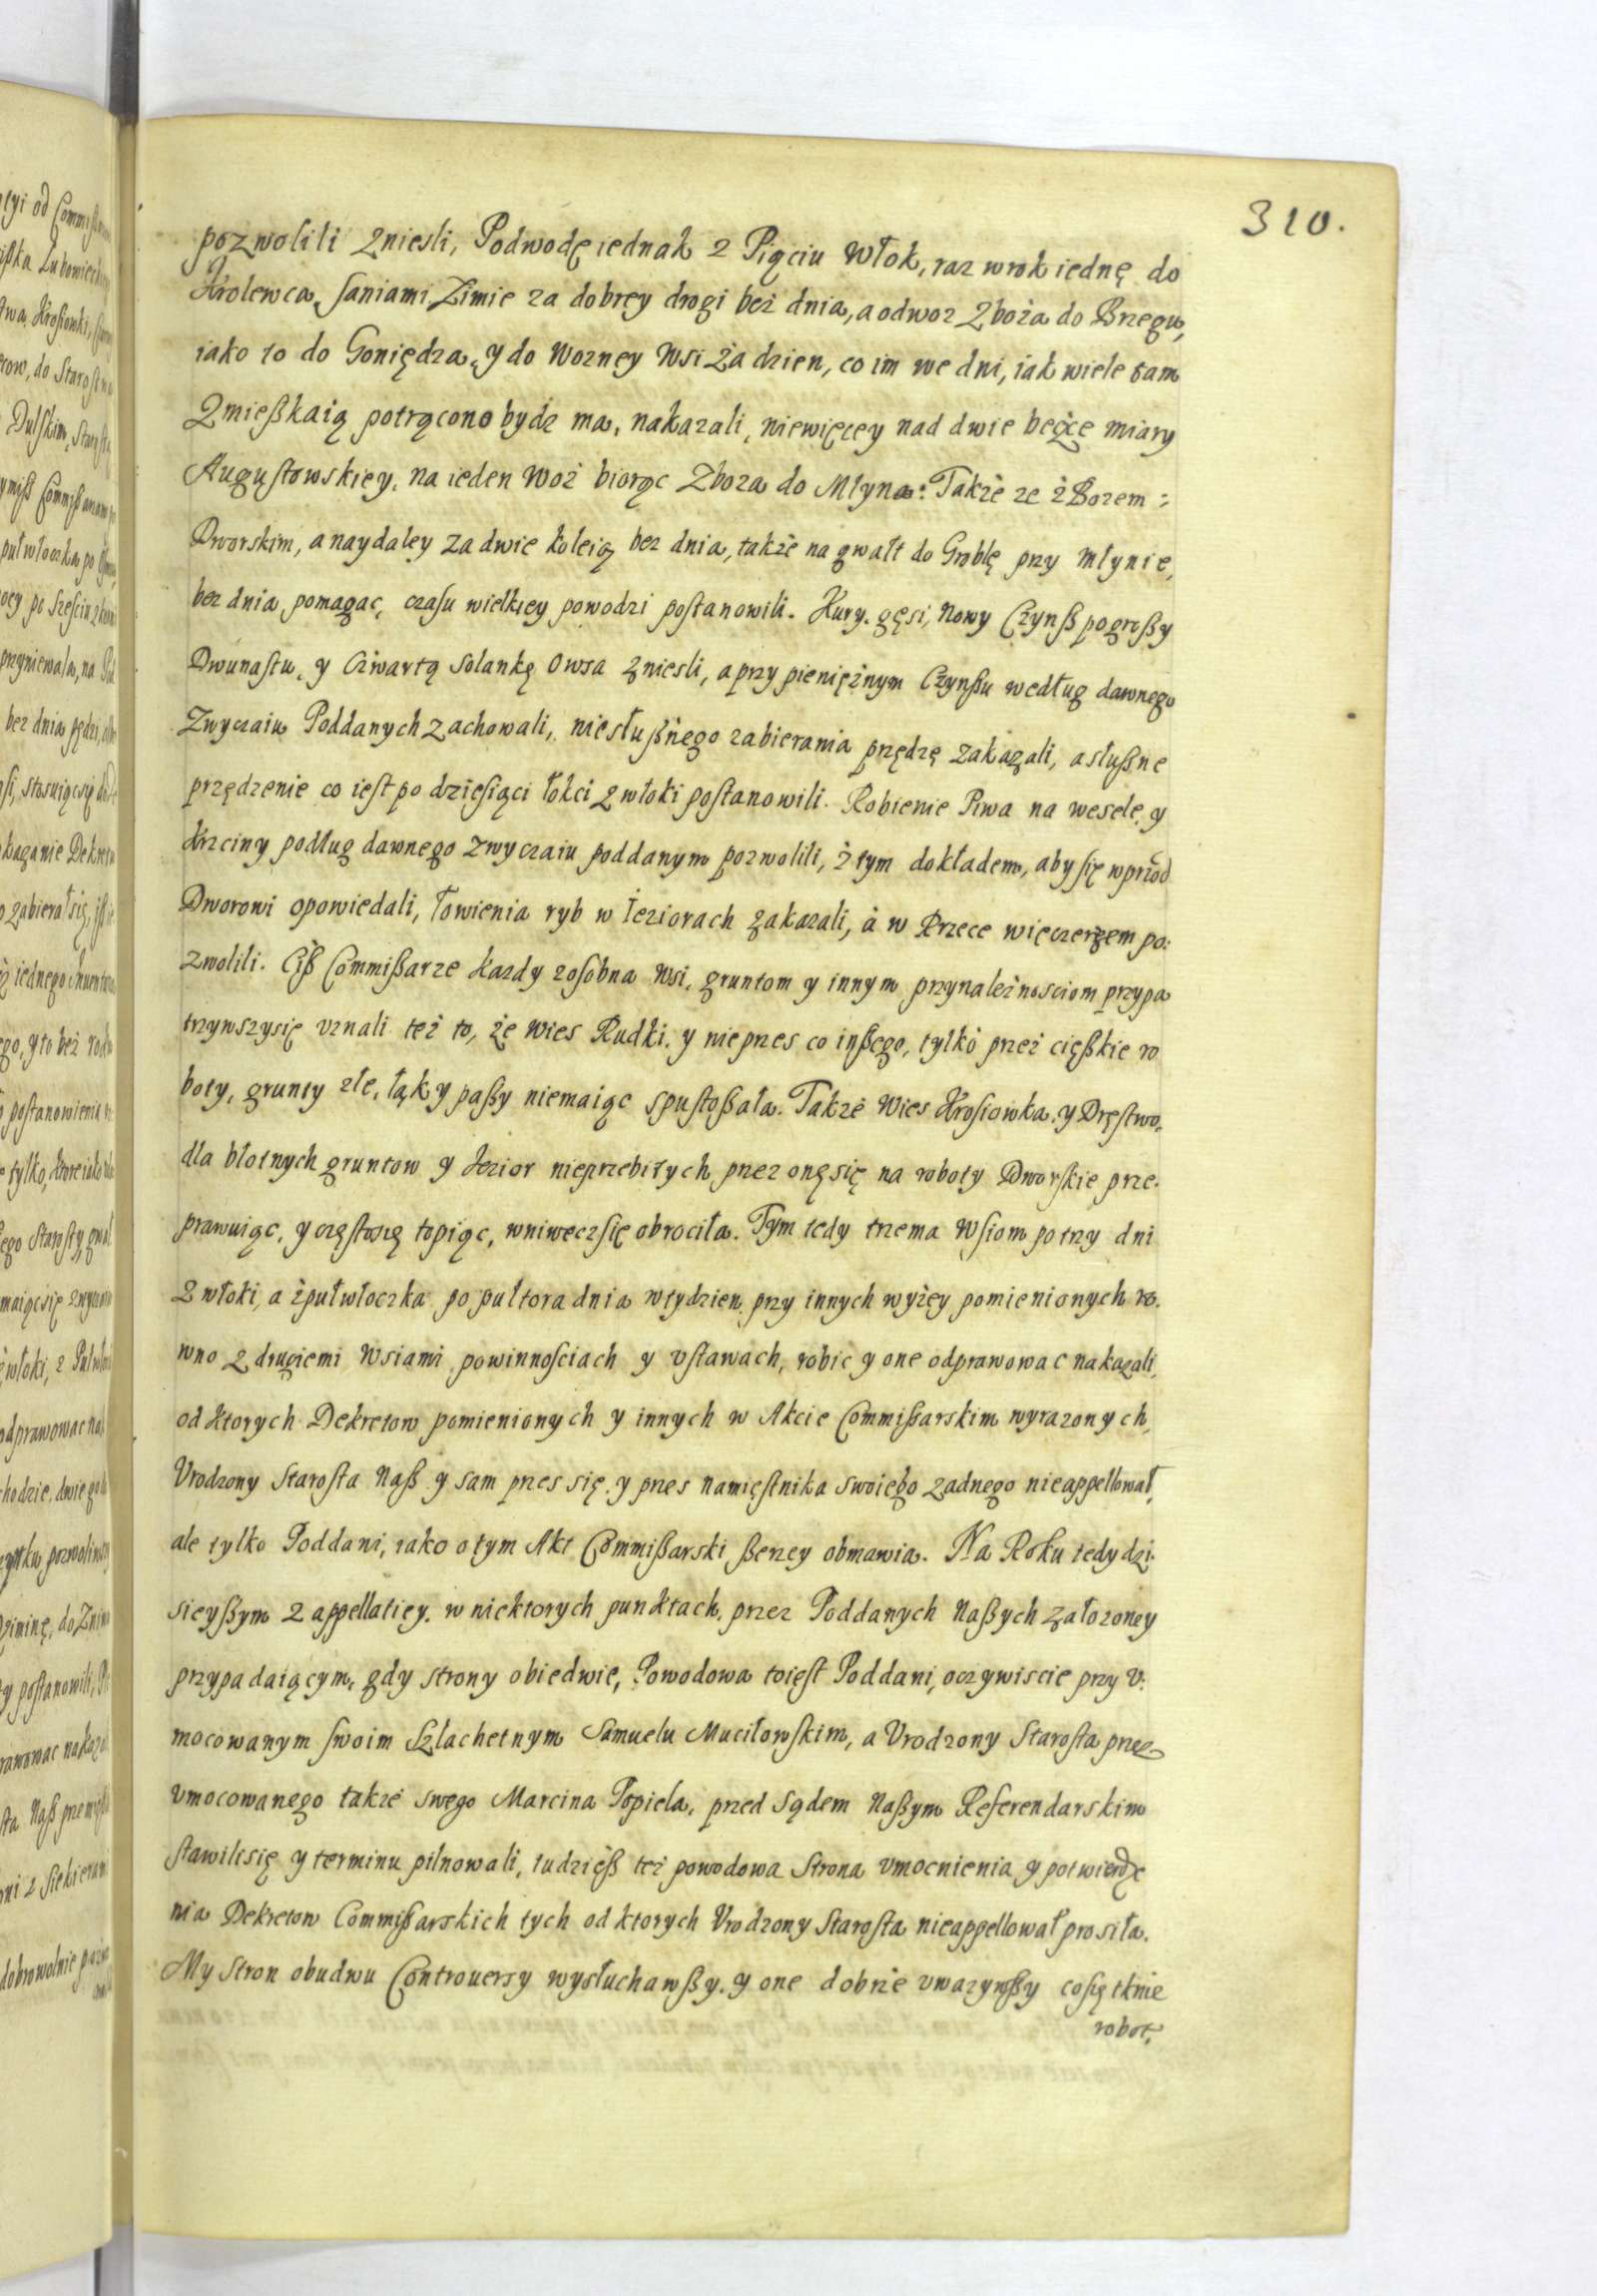 310.
pozwolili zniesli, Podwodę iednak z Piąciu Włok, raz wrok iednę do
Krolewca, saniami Zimie za dobrey drogi beż dnia, a odwoz Zboża do Brzegu,
iako to do Goniędza, y do Wozney Wsi ża dzien, co im we dni, iak wiele tam
Zmießkaią potrącono bydz ma, nakazali, niewięcey nad dwie beżce miary
Augustowskiey, na ieden Woż biorąc Zboza do Młyna: Takżе ze żBozem =
Dworskim, a naydaley za dwie koleią bez dnia, także na gwałt do Groblę przy młynie,
bez dnia pomagac, czasu wielkiey powodzi postanowili. Kury, gęsi, Nowy Czynß pogroßy
Dwunastu, y Czwartą Solankę Owsa zniesli, a przy pieniężnym Czynßu według dawnego
Zwyczaiu Poddanych zachowali, niesłußnego zabierania przędzę zakazali, a słußne
przędzenie co iest po dziesiąci łokci z włoki postanowili. Robienie Piwa na wesele, y
krzciny podług dawnego zwyczaiu poddanym pozwolili, ż tym dokładem, aby się wprżod
Dworowi opowiedali, łowienia ryb w Ieziorach zakazali, à w Rzece więczerzem po:
zwolili. Ciß Commißarze kazdy zosobna Wsi, gruntom y innym przynależnosciom przypa
trzywszysię vznali też to, że Wies Rudki, y nieprzes co inßego, tylkò przeż cięßkie ro
boty, grunty złe, łąk y paßy niemaiąc spustoßała. Takżе Wies Krosiowka, y Dręstwo,
dla błotnych gruntow y Iezior nieprzebitych, przez onę się na roboty Dworskie prze.
prawuiąc, y częstosię topiąc, wniweczsię obrociła. Tym tedy trzema Wsiom po trzy dni
z włoki, a żpułwłoczka po pułtora dnia w tydzien, przy innych wyżey pomienionych ro.
wno z drugiemi Wsiami powinnosciach y vstawach, robic y one odprawowac nakazali,
od ktorych Dekretow pomienionych y innych w Akcie Commißarskim wyrazonych,
Vrodzony Starosta Naß y sam przes się, y przes namięstnika swoiego zadnego nieappellował,
ale tylko Poddani, iako o tym Akt Commißarski ßerzey obmawia. Na Roku tedy dzi
sieyßym z appellatiey, w niektorych punktach, przez Poddanych Naßych założoney
przypadaiącym, gdy strony obiedwie, Powodowa toiest Poddani, oczywiscie przy v:
mocowanym swoim Szlachetnym Samuelu Muciłowskim, a Vrodzony Starosta przez
vmocowanego takżе swego Marcina Popiela, przed Sądem Naßym Referendarskim
stawilisię y terminu pilnowali, tudzieß też powodowa Strona vmocnienia y potwierdze
nia Dekretow Commißarskich tych od ktorych Vrodzony Starosta nieappellował prosiła.
My Stron obudwu Controuersy wysłuchawßy, y one dobrże vwazywßy cosię tknie
robot,